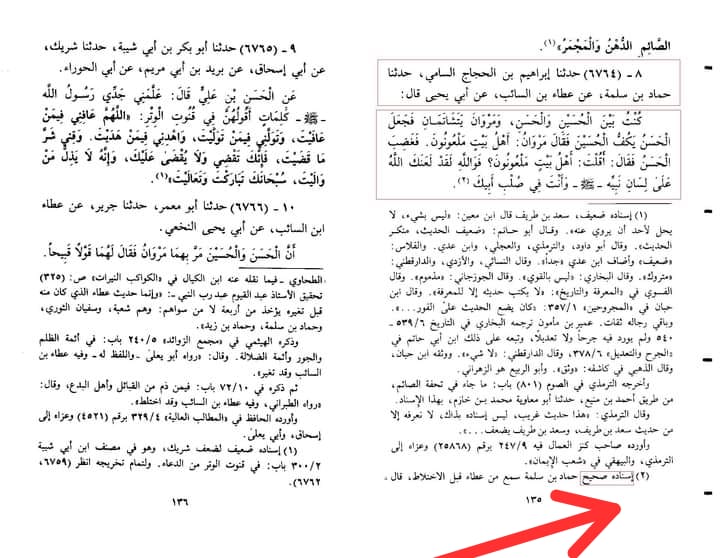 الصَّائِمِ الدُّهْنُ وَالْمَجْمَرُ»(١).
٨ ـ (٦٧٦٤) حدثنا إبراهيم بن الحجاج السامي، حدثنا
حماد بن سلمة، عن عطاء بن السائب، عن أبي يحيى قال:
كُنْتُ بَيْنَ الْحُسَيْنِ وَالْحَسَنِ، وَمَرْوَانَ يَتَشَاتَمَانِ فَجَعَلَ
الْحَسَنُ يَكُفُّ الْحُسَيْنَ فَقَالَ مَرْوَانُ: أَهْلُ بَيْتٍ مَلْعُونُونَ. فَغَضِبَ
الْحَسَنُ فَقَالَ: أَقُلْتَ: أَهْلُ بَيْتٍ مَلْعُونُونَ؟ فَوَاللَّهِ لَقَدْ لَعَنَكَ اللَّهُ
عَلَىٰ لِسَانِ نَبِيِّهِ ـ ﷺ ـ وَأَنْتَ فِي صُلْبِ أَبِيكَ (٢).
(١) إسناده ضعيف، سعد بن طريف قال ابن معين: «ليس بشيء، لا
يحل لأحد أن يروي عنه». وقال أبو حاتم: «ضعيف الحديث، منكر
الحديث». وقال أبو داود، والترمذي، والعجلي، وابن عدي. والفلاس:
«ضعيف» وأضاف ابن عدي «جداً». وقال النسائي، والأزدي، والدارقطني:
«متروك». وقال البخاري: «ليس بالقوي». وقال الجوزجاني: «مذموم». وقال
الفسوي في «المعرفة والتاريخ»: «لا يكتب حديثه إلا للمعرفة». وقال ابن
حبان في «المجروحين» ٣٥٧/١: «كان يضع الحديث على الفور...».
وباقي رجاله ثقات. عمير بن مأمون ترجمه البخاري في التاريخ ٥٣٩/٦ ـ
٥٤٠ ولم يورد فيه جرحاً ولا تعديلاً، وتبعه على ذلك ابن أبي حاتم في
«الجرح والتعديل» ٣٧٨/٦، وقال الدارقطني: «لا شيء». ووثقه ابن حبان،
وقال الذهبي في كاشفه: «وثق». وأبو الربيع هو الزهراني.
وأخرجه الترمذي في الصوم (٨٠١) باب: ما جاء في تحفة الصائم،
من طريق أحمد بن منيع، حدثنا أبو معاوية محمد بن خازم، بهذا الإسناد.
وقال الترمذي: «هذا حديث غريب، ليس إسناده بذاك، لا نعرفه إلا
من حديث سعد بن طريف، وسعد بن طريف يضعف...».
وأورده صاحب كنز العمال فيه ٢٤٧/٩ برقم (٢٥٨٦٨) وعزاه إلى
الترمذي، والبيهقي في «شعب الإيمان».
(٢) إسناده صحيح حماد بن سلمة سمع من عطاء قبل الاختلاط، قال ـ
١٣٥
٩ ـ (٦٧٦٥) حدثنا أبو بكر بن أبي شيبة، حدثنا شريك،
عن أبي إسحاق، عن بريد بن أبي مريم، عن أبي الحوراء.
عَنِ الْحَسَنِ بْنِ عَلِيٍّ قَالَ: عَلَّمَنِي جَدِّي رَسُولُ اللَّهِ
ـ ﷺ ـ كَلِمَاتٍ أَقُولُهُنَّ فِي قُنُوتِ الْوِتْرِ: «اللَّهُمَّ عَافِنِي فِيمَنْ
عَافَيْتَ، وَتَوَلَّنِي فِيمَنْ تَوَلَّيْتَ، وَاهْدِنِي فِيمَنْ هَدَيْتَ. وَقِنِي شَرَّ
مَا قَضَيْتَ، فَإِنَّكَ تَقْضِي وَلَا يُقْضَى عَلَيْكَ، وَإِنَّهُ لَا يَذِلُّ مَنْ
وَالَيْتَ، سُبْحَانَكَ تَبَارَكْتَ وَتَعَالَيْتَ»(١).
١٠ ـ (٦٧٦٦) حدثنا أبو معمر، حدثنا جرير، عن عطاء
ابن السائب، عن أبي يحيى النخعي.
أَنَّ الْحَسَنَ وَالْحُسَيْنَ مَرَّ بِهِمَا مَرْوَانُ فَقَالَ لَهُمَا قَوْلاً قَبِيحاً.
الطحاوي ـ فيما نقله عنه ابن الكيال في «الكواكب النيرات» ص: (٣٢٥)
تحقيق الأستاذ عبد القيوم عبد رب النبي ـ: «وإنما حديث عطاء الذي كان منه
قبل تغيره يؤخذ من أربعة لا من سواهم: وهم شعبة، وسفيان الثوري،
وحماد بن سلمة، وحماد بن زيد).
وذكره الهيثمي في «مجمع الزوائد» ٢٤٠/٥ باب: في أئمة الظلم
والجور وأئمة الضلالة. وقال: «رواه أبو يعلىٰ ـ واللفظ له ـ وفيه عطاء بن
السائب وقد تغير».
ثم ذكره في ٧٢/١٠ باب: فيمن ذم من القبائل وأهل البدع، وقال:
«رواه الطبراني، وفيه عطاء بن السائب وقد اختلط».
وأورده الحافظ في «المطالب العالية» ٣٢٩/٤ برقم (٤٥٢١) وعزاه إلى
إسحاق، وأبي يعلىٰ.
(١) إسناده ضعيف لضعف شريك، وهو في مصنف ابن أبي شيبة
٣٠٠/٢ باب: في قنوت الوتر من الدعاء. ولتمام تخريجه انظر (٦٧٥٩،
٦٧٦٢).
١٣٦